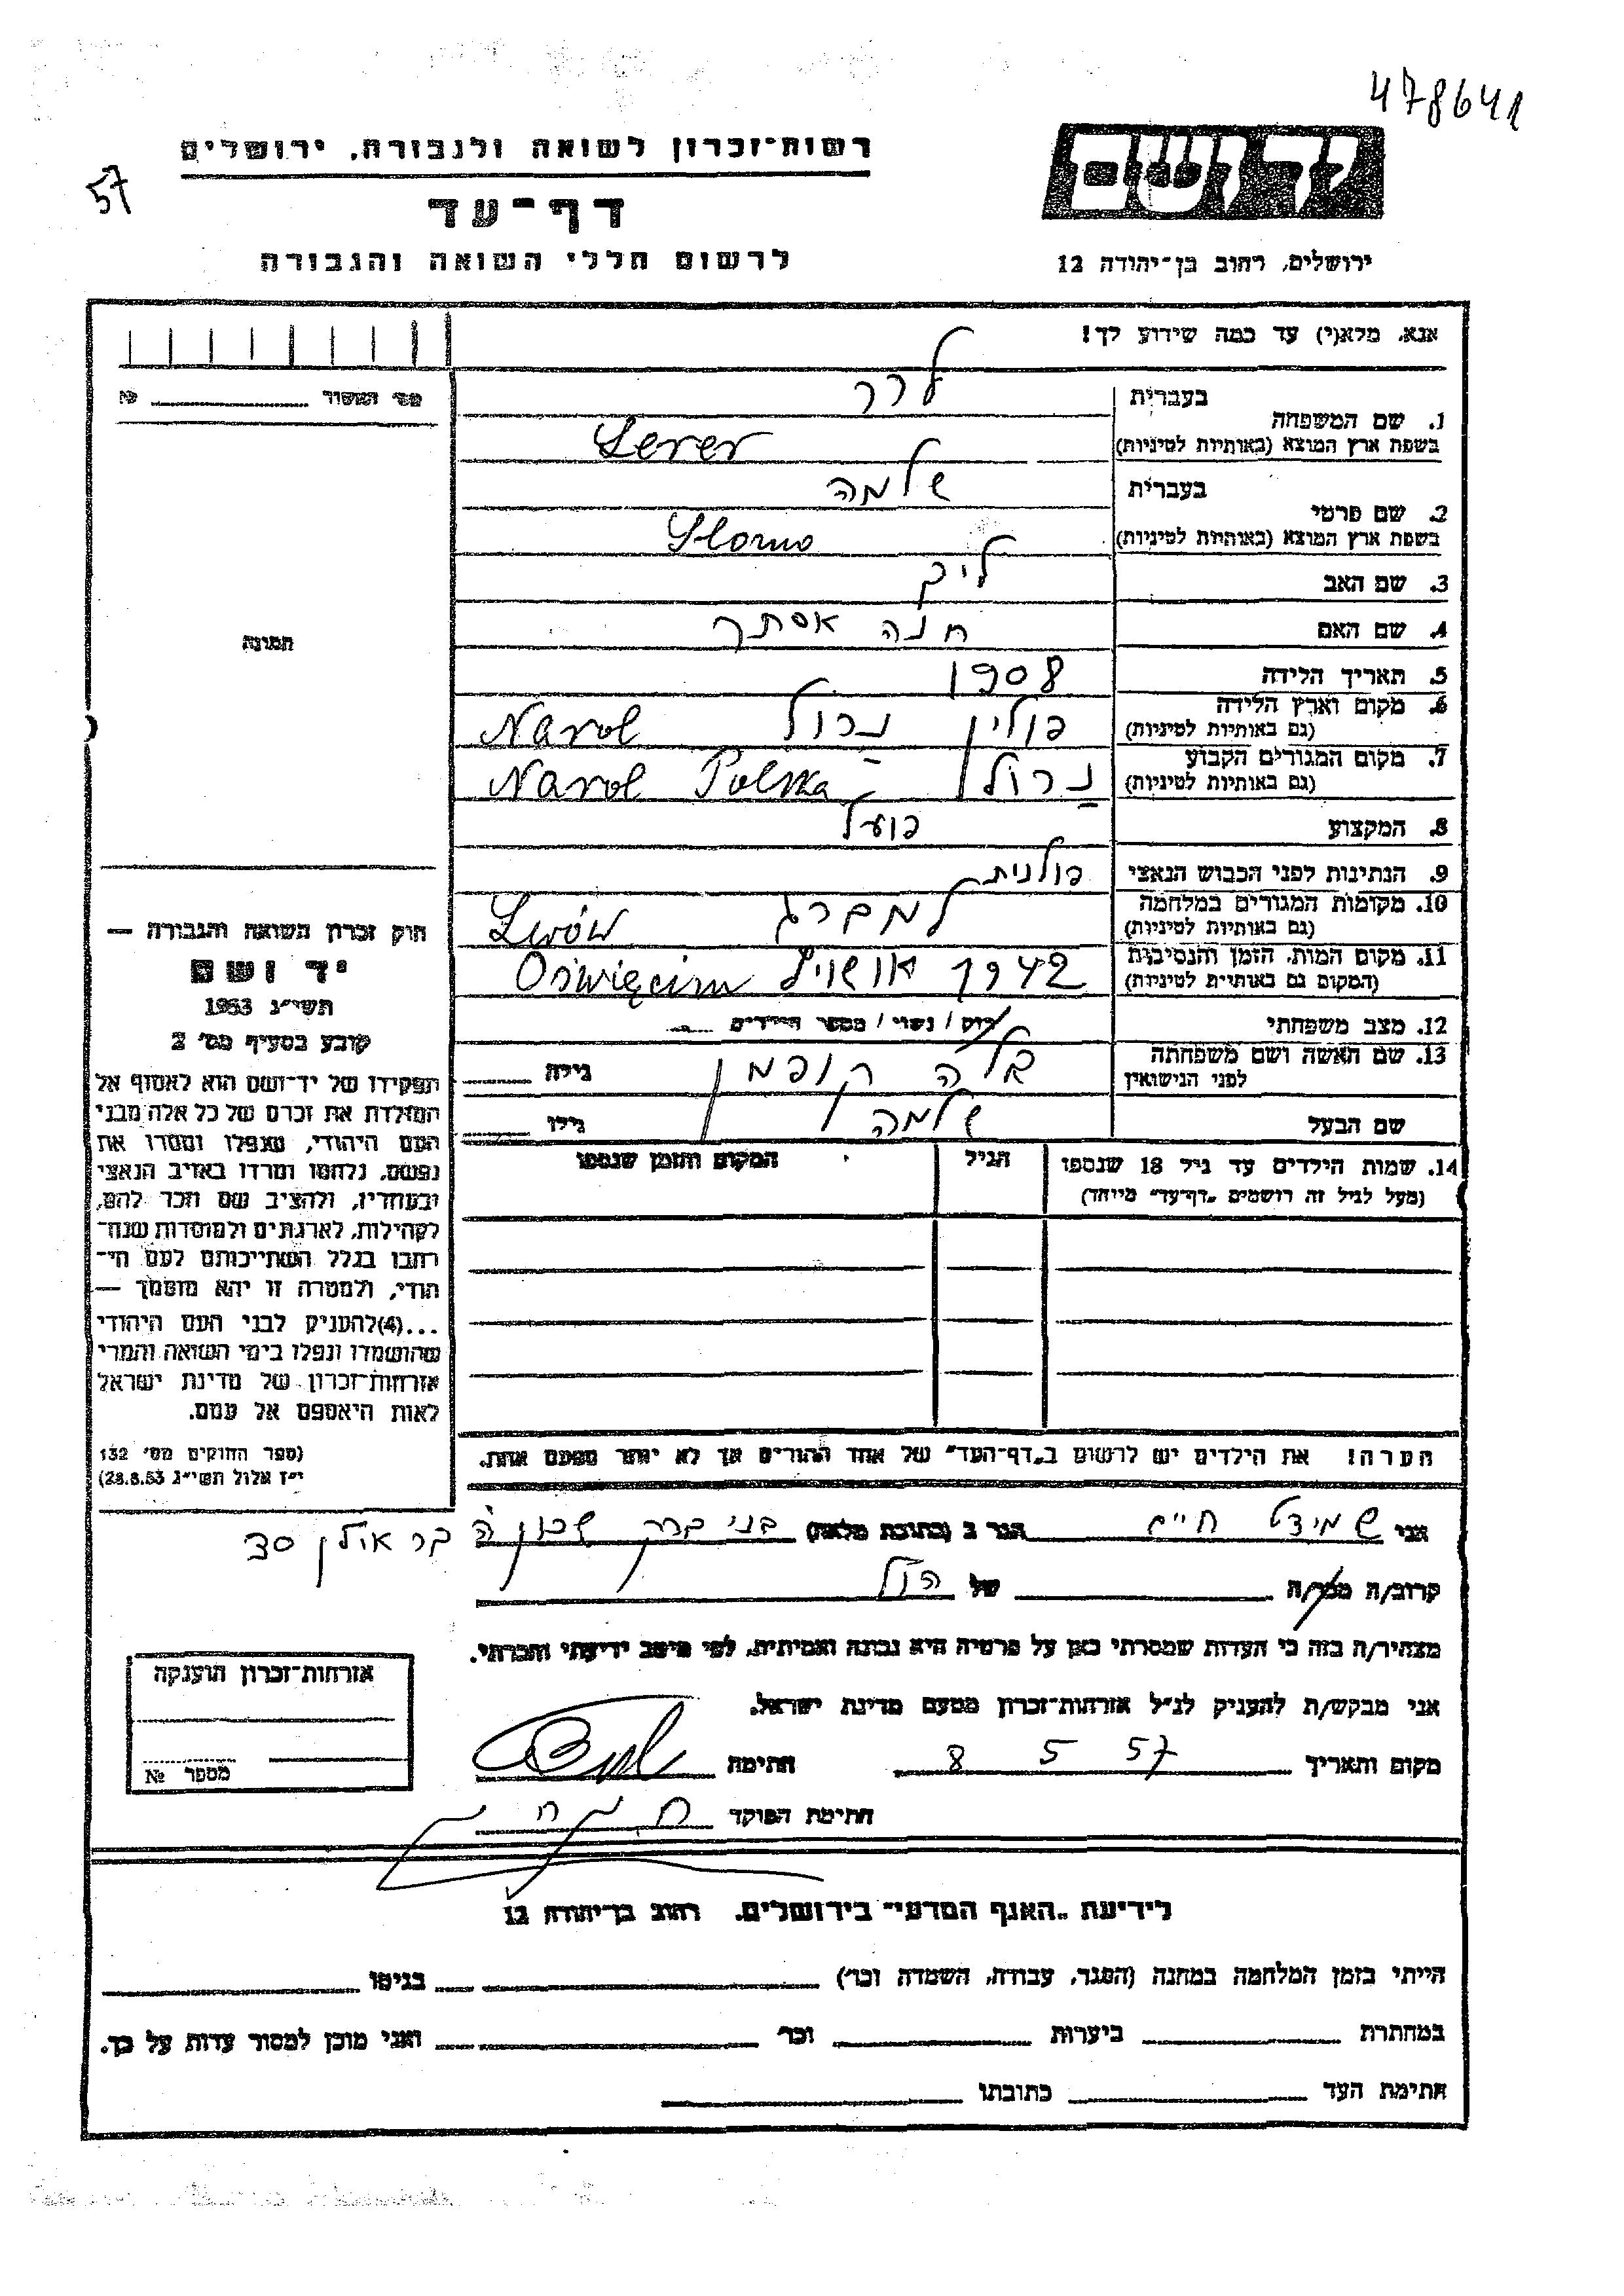 478641
57
רשות-זכרון לשואה ולגבורה, ירושלים
דף-עד
לרשום חללי השואה והגבורה
יד ושם
ירושלים, רחוב בן-יהודה 12
אנא, מלא(י) עד כמה שידוע לך!
מס' האשור № 
1. שם המשפחה בעברית לרר
בשפת ארץ המוצא (באותיות לטיניות) Lerer
2. שם פרטי בעברית שלמה
בשפת ארץ המוצא (באותיות לטיניות) Slomo
3. שם האב
4. שם האם חנה אסתר
5. תאריך הלידה 1908
6. מקום וארץ הלידה (גם באותיות לטיניות) פולין נרול Narol
7. מקום המגורים הקבוע (גם באותיות לטיניות) נרול Narol Polska
8. המקצוע פועל
9. הנתינות לפני הכבוש הנאצי פולנית
10. מקומות המגורים במלחמה (גם באותיות לטיניות) למברג Lwów
11. מקום המות, הזמן והנסיבות (המקום גם באותיות לטיניות) 1942 Oświęcim
12. מצב משפחתי רווק / נשוי / מספר הילדים
13. שם האשה ושם משפחתה לפני הנישואין בלה קופמן גילה
שם הבעל שלמה גילו
14. שמות הילדים עד גיל 18 שנספו הגיל המקום והזמן שנספו
(מעל לגיל זה רושמים "דף-עד" מיוחד)
תמונה
חוק זכרון השואה והגבורה —
יד ושם
תשי"ג 1953
קובע בסעיף מס' 2
תפקידו של יד-ושם הוא לאסוף אל
המולדת את זכרם של כל אלה מבני
העם היהודי, שנפלו ומסרו את
נפשם, נלחמו ומרדו באויב הנאצי
ובעוזריו, ולהציב שם וזכר להם,
לקהילות, לארגונים ולמוסדות שנח-
רבו בגלל השתייכותם לעם הי-
הודי, ולמטרה זו יהא מוסמך —
...(4)להעניק לבני העם היהודי
שהושמדו ונפלו בימי השואה והמרי
אזרחות-זכרון של מדינת ישראל
לאות היאספם אל עמם.
(ספר החוקים מס' 132
י"ז אלול תשי"ג 28.8.53)
הערה! את הילדים יש לרשום ב"דף-העד" של אחד ההורים אך לא יותר מפעם אחת.
אני שמידט חיים הגר ב (כתובת מלאה) בני ברק שכון ה בר אילן
קרוב/ה מכר/ה של הנ"ל
מצהיר/ה בזה כי העדות שמסרתי כאן על פרטיה היא נכונה ואמיתית, לפי מיטב ידיעתי והכרתי.
אני מבקש/ת להעניק לנ"ל אזרחות-זכרון מטעם מדינת ישראל.
מקום ותאריך 8 5 57 חתימה
חתימת הפוקד
אזרחות-זכרון הוענקה
מספר №
לידיעת "האגף המדעי" בירושלים. רחוב בן-יהודה 12
הייתי בזמן המלחמה במחנה (הסגר, עבודה, השמדה וכו') בגיטו
במחתרת ביערות וכו' ואני מוכן למסור עדות על כך.
חתימת העד כתובתו